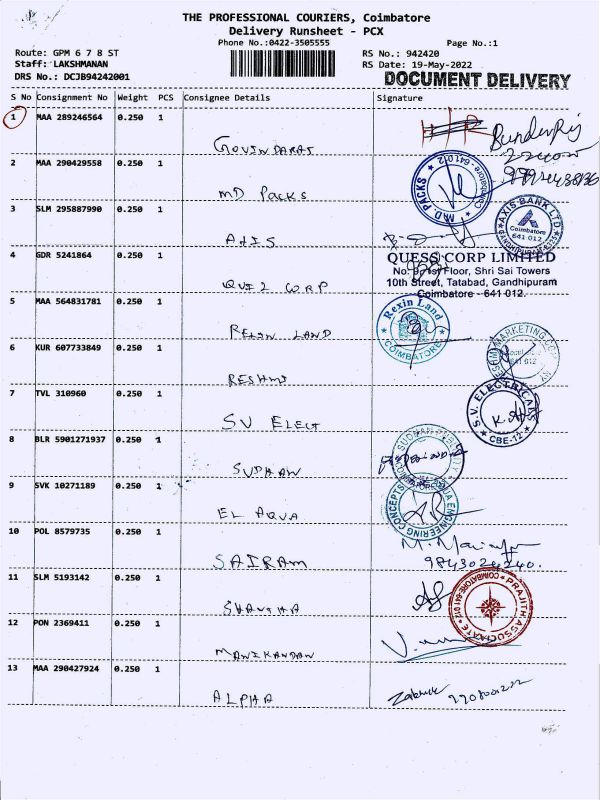 THE PROFESSIONAL COURIERS, Coimbatore
Delivery Runsheet - PCX
Phone No.:0422-3505555
Page No.:1
Route: GPM 6 7 8 ST
RS No.: 942420
Staff: LAKSHMANAN
RS Date: 19-May-2022
DRS No.: DCJB94242001
DOCUMENT DELIVERY
S No Consignment No Weight PCS Consignee Details Signature
1 MAA 289246564 0.250 1
GOVINDARAJ
2 MAA 290429558 0.250 1
MD PACKS
M.D. PACKS
Coimbatore - 641 012
3 SLM 295887990 0.250 1
AXIS
AXIS BANK LTD.
Coimbatore
641 012
4 GDR 5241864 0.250 1
CORP
QUESS CORP LIMITED
No. 9, 1st Floor, Shri Sai Towers
10th Street, Tatabad, Gandhipuram
Coimbatore - 641 012.
5 MAA 564831781 0.250 1
REXIN LAND
Rexin Land
COIMBATORE
6 KUR 607733849 0.250 1
RESHMI
RESHMI MARKETING COMPANY
7 TVL 310960 0.250 1
SV ELECT
S.V. ELECTRICALS
CBE-12
8 BLR 5901271937 0.250 1
SUDHAN
9 SVK 10271189 0.250 1
EL AQUA
AQUA ENGINEERING CONCEPTS
10 POL 8579735 0.250 1
SAIRAM
11 SLM 5193142 0.250 1
PRAJITH ASSOCIATE
COIMBATORE-641 012
12 PON 2369411 0.250 1
MANIKANDAN
13 MAA 290427924 0.250 1
ALPHA